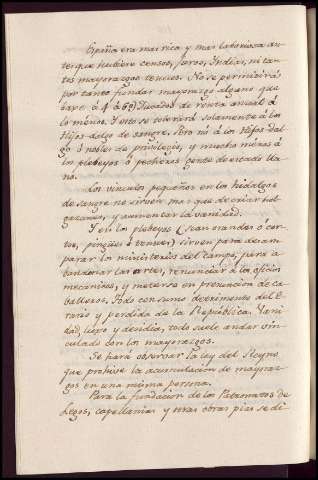 España era mas rica y mas laboriosa an-
tes que hubiere censos, juros, Indias, ni tan-
tos mayorazgos tenues. No se permitirá
por tanto fundar mayorazgo alguno que
baxe á 4 ó 6 Ducados de renta anual á
lo menos. Y esto se tolerará solamente á los
Hijos dalgo de sangre. Pero no á los Hijos dal-
go ó nobles de privilegio, y mucho menos á
los plebeyos ó pecheros gente de estado lla-
no.
Los vinculos pequeños en los hidalgos
de sangre no sirven mas que de criar hol-
gazanes, y aumentar la vanidad.
Y en los plebeyos (sean grandes ó cor-
tos, pingües ó tenues) sirven para desam-
parar los ministerios del campo, para a-
bandonar las artes, renunciar á los oficios
mecánicos, y meterse en presuncion de ca-
balleros. Todo con sumo detrimento del E-
rario y perdida de la República. Vani-
dad, luxo y desidia, todo suele andar vin-
culado con los mayorazgos.
Se hará observar la ley del Reyno
que prohive la acumulacion de mayoraz-
gos en una misma persona.
Para la fundacion de los Patronatos de
Legos, capellanias y otras obras pias se di